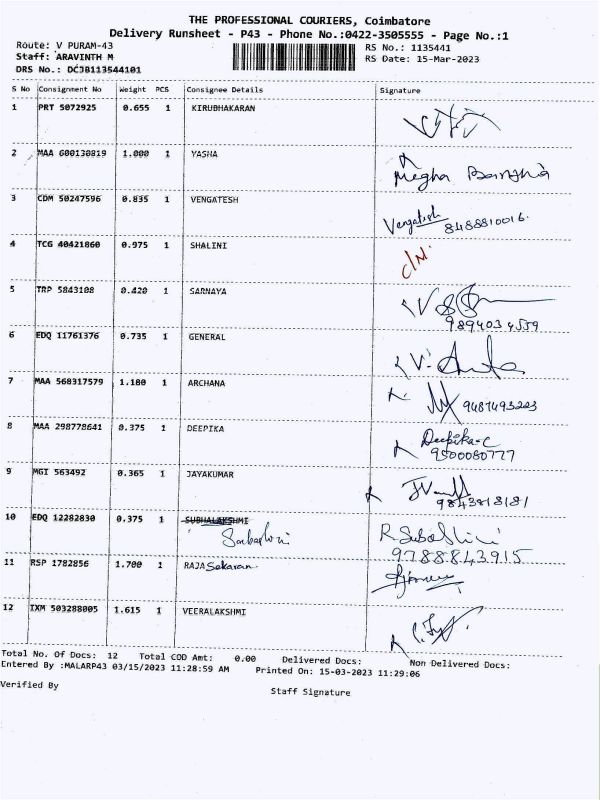 THE PROFESSIONAL COURIERS, Coimbatore
Delivery Runsheet - P43 - Phone No.:0422-3505555 - Page No.:1
Route: V PURAM-43 RS No.: 1135441
Staff: ARAVINTH M RS Date: 15-Mar-2023
DRS No.: DCJB113544101
S No Consignment No Weight PCS Consignee Details Signature
1 PRT 5072925 0.655 1 KIRUBHAKARAN
2 MAA 600130819 1.000 1 YASHA Megha
3 CDM 50247596 0.835 1 VENGATESH Vengatesh 8488810016.
4 TCG 40421860 0.975 1 SHALINI C/N.
5 TRP 5843108 0.420 1 SARNAYA
6 EDQ 11761376 0.735 1 GENERAL
7 MAA 568317579 1.180 1 ARCHANA 9487493203
8 MAA 298778641 0.375 1 DEEPIKA Deepika-C
9500080777
9 MGI 563492 0.365 1 JAYAKUMAR
9843818181
10 EDQ 12282830 0.375 1 SUBHALAKSHMI R Subashini
9788843915
11 RSP 1782856 1.700 1 RAJA Sekaran
12 IXM 503288005 1.615 1 VEERALAKSHMI
Total No. Of Docs: 12 Total COD Amt: 0.00 Delivered Docs: Non Delivered Docs:
Entered By :MALARP43 03/15/2023 11:28:59 AM Printed On: 15-03-2023 11:29:06
Verified By Staff Signature